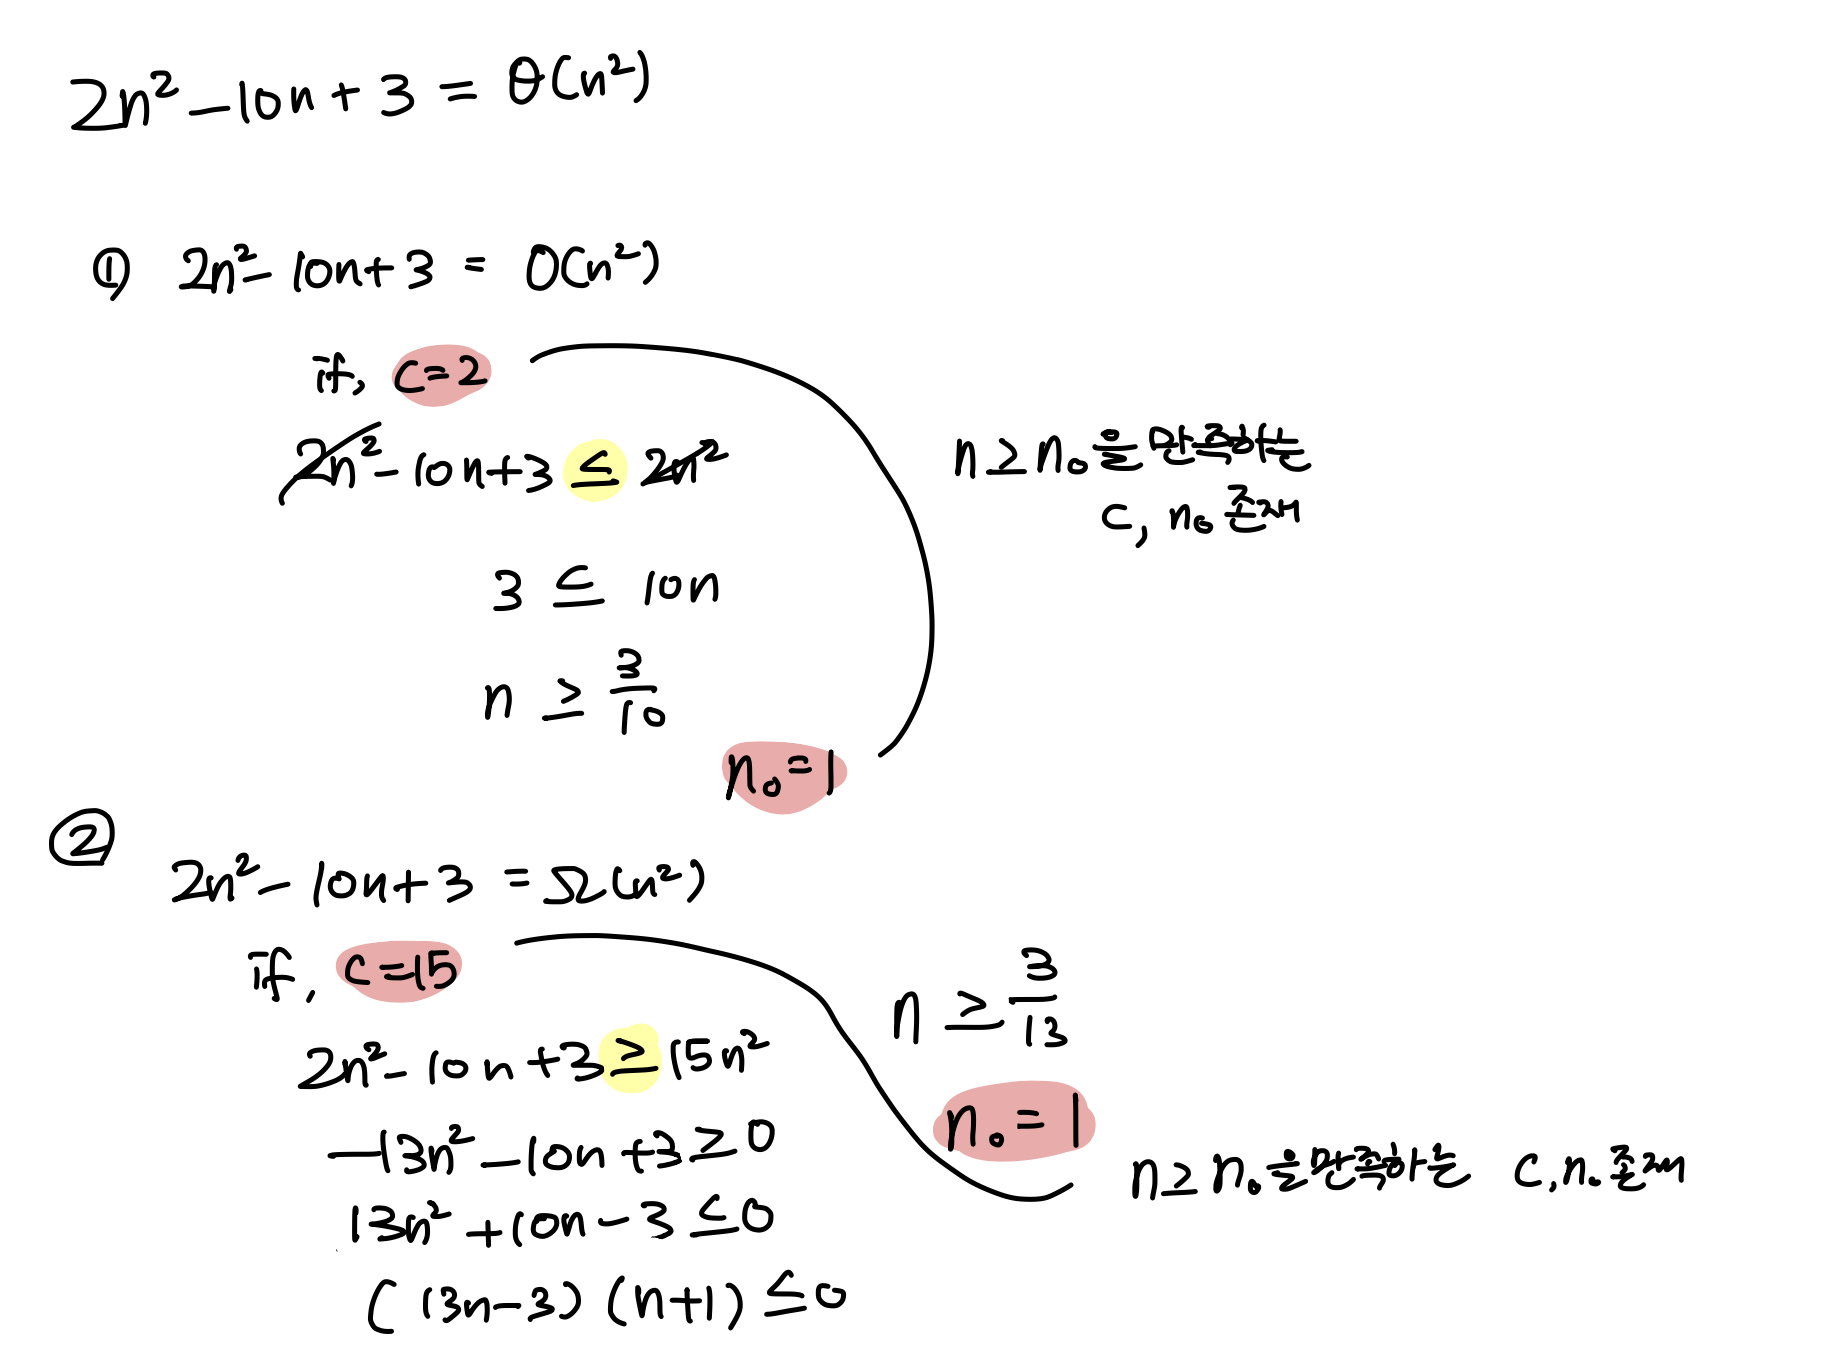 2n² - 10n + 3 = θ(n²)
① 2n² - 10n + 3 = O(n²)
if, c=2
2n² - 10n + 3 ≤ 2n²
3 ≤ 10n
n ≥ 3/10
n₀ = 1
n ≥ n₀을 만족하는
c, n₀ 존재
②
2n² - 10n + 3 = Ω(n²)
if, c=15
2n² - 10n + 3 ≥ 15n²
-13n² - 10n + 3 ≥ 0
13n² + 10n - 3 ≤ 0
(13n-3) (n+1) ≤ 0
n ≥ 3/13
n₀ = 1
n ≥ n₀을 만족하는 c, n₀ 존재